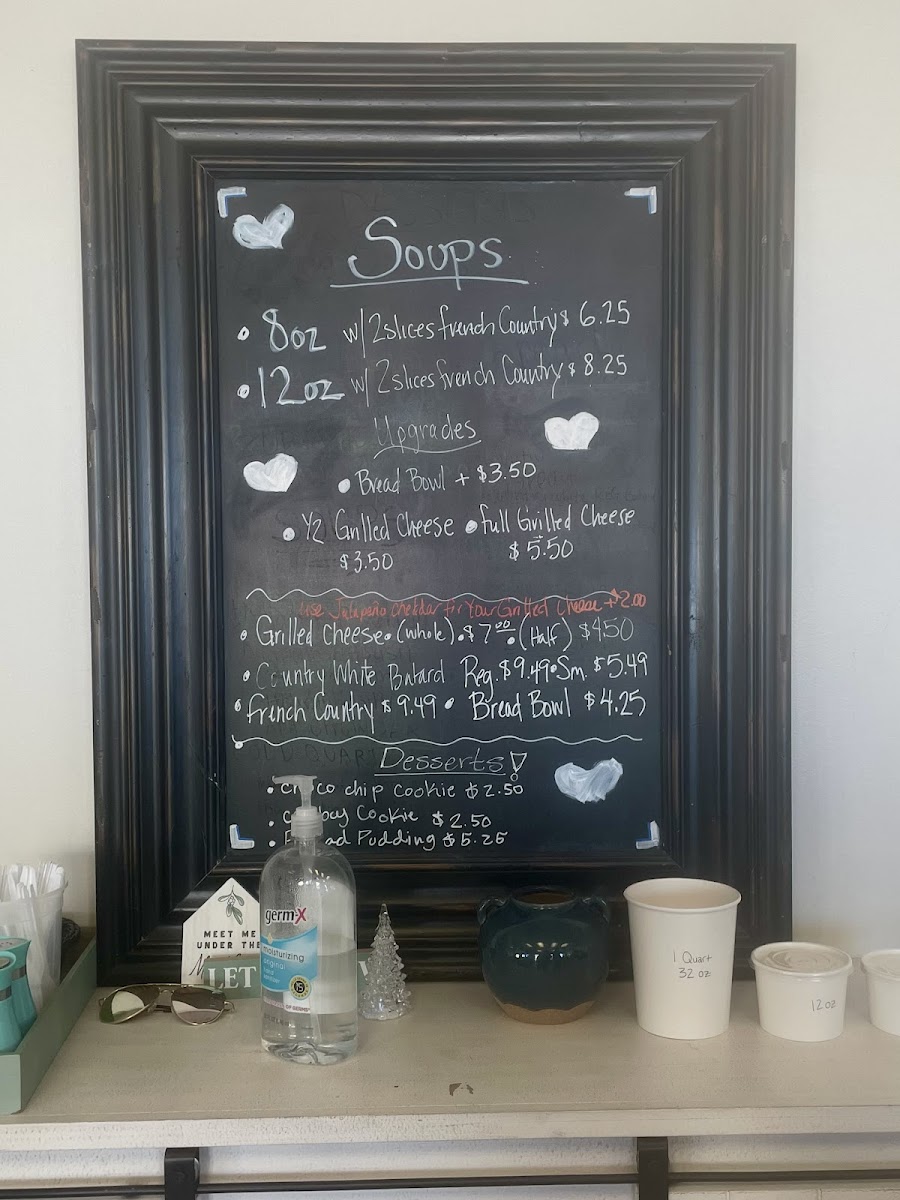 Soups
• 8oz w/ 2 slices french Country $ 6.25
• 12oz w/ 2 slices french Country $ 8.25
Upgrades
• Bread Bowl + $3.50
• 1/2 Grilled Cheese • full Grilled Cheese
$3.50 $5.50
use Jalapeño cheddar for Your Grilled Cheese +$2.00
• Grilled cheese • (whole) • $7.00 • (Half) $4.50
• Country White Batard Reg. $9.49 • Sm. $5.49
• french Country $ 9.49 • Bread Bowl $4.25
Desserts!
• choco chip cookie $2.50
• Cowboy Cookie $2.50
• Bread Pudding $5.25
germ-X
moisturizing
original
hand
sanitizer
MEET ME
UNDER THE
LET
1 Quart
32 oz
12oz